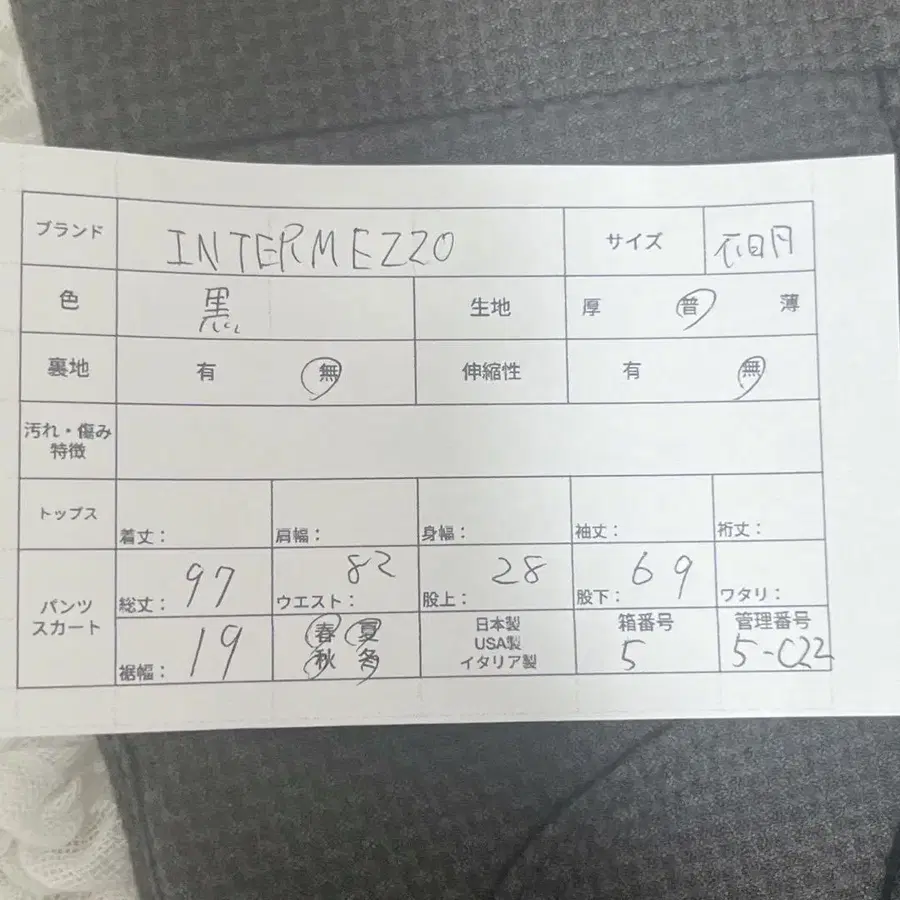 ブランド INTERMEZZO サイズ 不明
色 黒 生地 厚 普 薄
裏地 有 無 伸縮性 有 無
汚れ・傷み
特徴
トップス 着丈: 肩幅: 身幅: 袖丈: 裄丈:
パンツ
スカート
総丈: 97 ウエスト: 82 股上: 28 股下: 69 ワタリ:
裾幅: 19
春 夏
秋 冬
日本製
USA製
イタリア製
箱番号
5
管理番号
5-C22